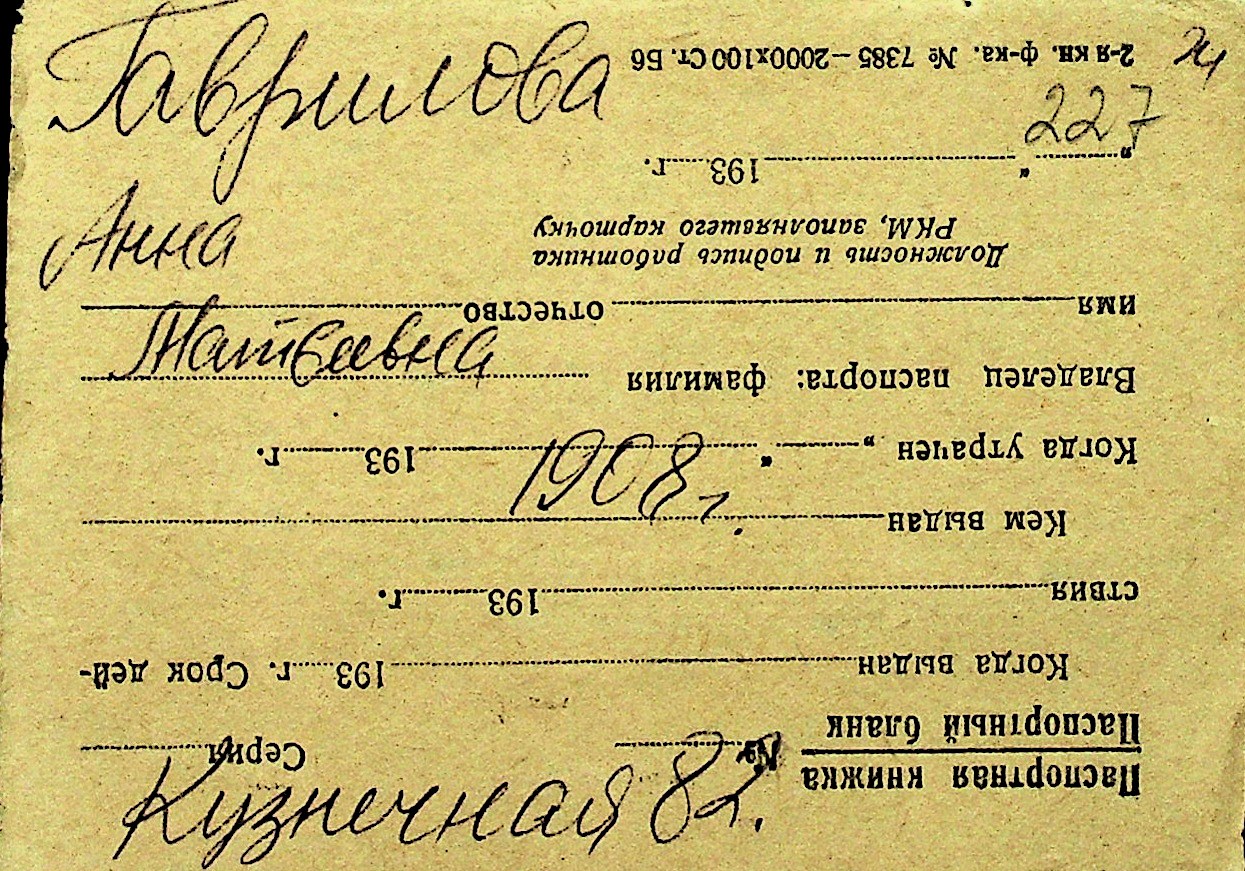 Гаврилова
Анна
Матвеевна
1908 г.
Кузнечная 82.
227
Паспортная книжка
Паспортный бланк
№ Серия
Когда выдан 193 г. Срок дей-
ствия 193 г.
Кем выдан
Когда утрачен „ " 193 г.
Владелец паспорта: фамилия
имя отчество
Должность и подпись работника
РКМ, заполнявшего карточку
„ " 193 г.
2-я кн. ф-ка. № 7385—2000х100 Ст. Б6